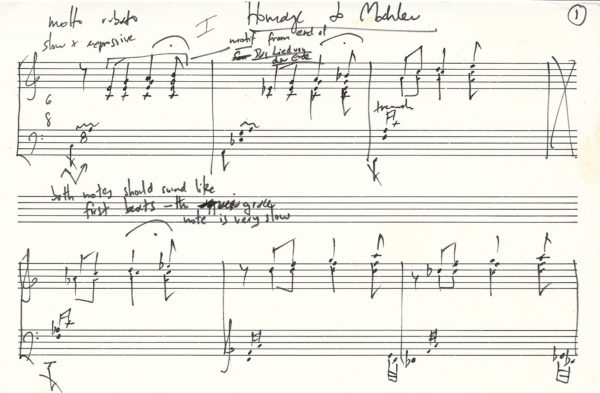 I Homage to Mahler
1
molto rubato
slow & expressive
motif from end of
Das Lied von
der Erde
6
8
tremolo
both notes should sound like
first beats - the grace
note is very slow